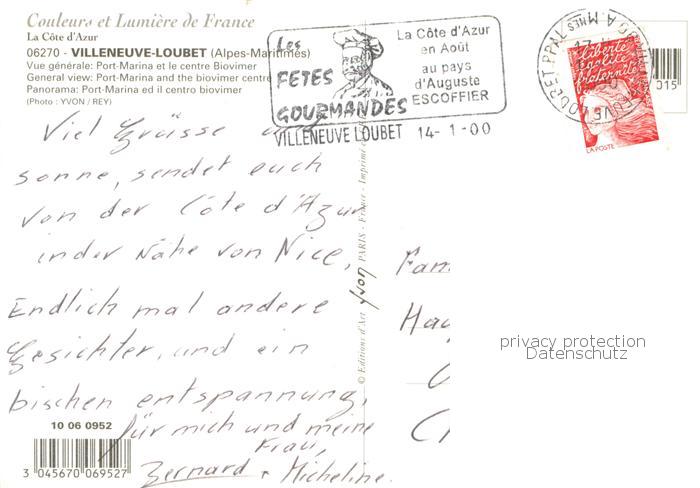 Couleurs et Lumière de France
La Côte d'Azur
06270 - VILLENEUVE-LOUBET (Alpes-Maritimes)
Vue générale: Port-Marina et le centre Biovimer
General view: Port-Marina and the biovimer centre
Panorama: Port-Marina ed il centro biovimer
(Photo : YVON / REY)
Les
FETES
GOURMANDES
La Côte d'Azur
en Août
au pays
d'Auguste
ESCOFFIER
VILLENEUVE LOUBET 14- 1-00
Liberté
Egalité
Fraternité
LA POSTE
015
Viel Grüsse und
sonne, sendet euch
von der Côte d'Azur
in der Nähe von Nice,
Endlich mal andere
Gesichter, und ein
bischen entspannung,
für mich und meine
Frau,
Bernard + Micheline.
© Editions d'Art yvon PARIS - France - Imprimé
Fam
Hag
privacy protection
Datenschutz
10 06 0952
3 045670 069527